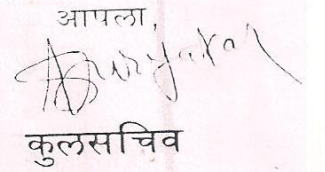 आपला,
कुलसचिव